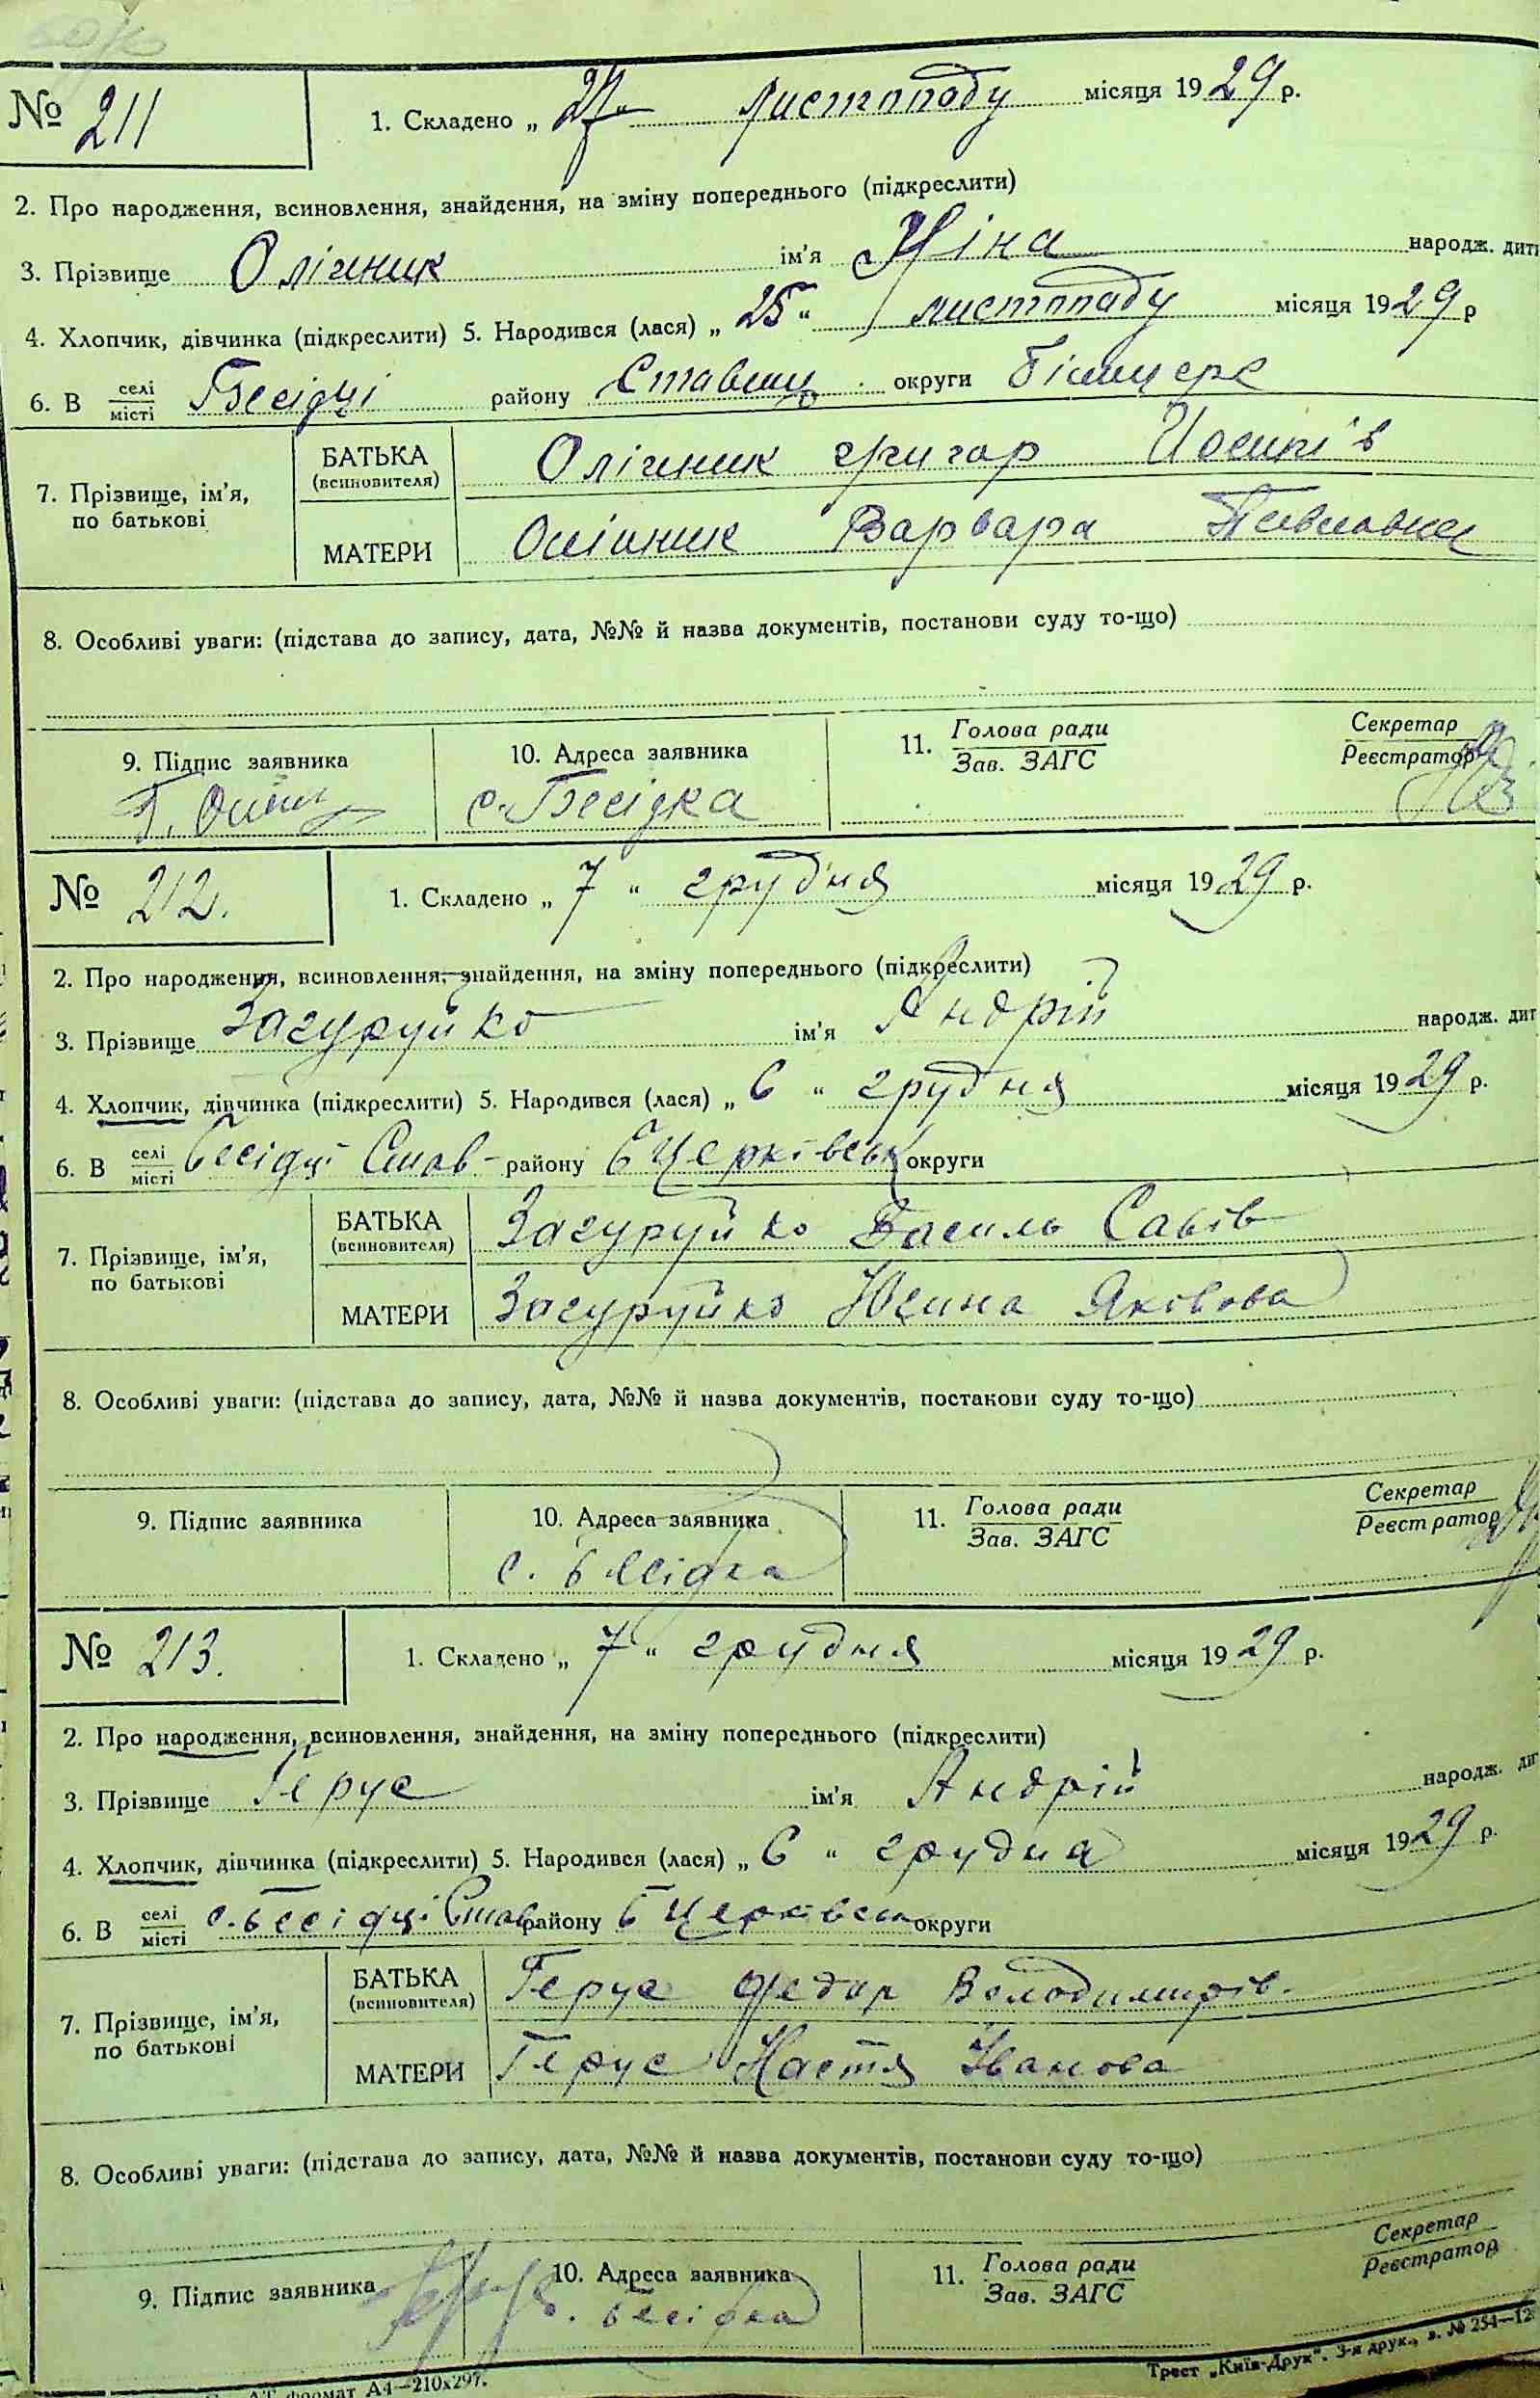 № 211
1. Складено „ 27 " листопаду місяця 1929 р.
2. Про народження, всиновлення, знайдення, на зміну попереднього (підкреслити)
3. Прізвище Олійник ім'я Ніна народж. дити
4. Хлопчик, дівчинка (підкреслити) 5. Народився (лася) „ 25 " листопаду місяця 1929 р
6. В селі/місті Бесідці району Ставищ. округи Білоцерк
7. Прізвище, ім'я, по батькові
БАТЬКА (всиновителя) Олійник григор Йосипів
МАТЕРИ Олійник Варвара Павловна
8. Особливі уваги: (підстава до запису, дата, №№ й назва документів, постанови суду то-що)
9. Підпис заявника
10. Адреса заявника
11. Голова ради / Зав. ЗАГС
Секретар / Реєстратор
с. Бесідка
№ 212.
1. Складено „ 7 " грудня місяця 1929 р.
2. Про народження, всиновлення, знайдення, на зміну попереднього (підкреслити)
3. Прізвище Загуруйко ім'я Андрій народж. дит
4. Хлопчик, дівчинка (підкреслити) 5. Народився (лася) „ 6 " грудня місяця 1929 р.
6. В селі/місті Бесідці Став- району БЦерківськ округи
7. Прізвище, ім'я, по батькові
БАТЬКА (всиновителя) Загуруйко Василь Савів
МАТЕРИ Загуруйко Югина Яковова
8. Особливі уваги: (підстава до запису, дата, №№ й назва документів, постакови суду то-що)
9. Підпис заявника
10. Адреса заявника
11. Голова ради / Зав. ЗАГС
Секретар / Реєстратор
с. Бесідка
№ 213.
1. Складено „ 7 " грудня місяця 1929 р.
2. Про народження, всиновлення, знайдення, на зміну попереднього (підкреслити)
3. Прізвище Герус ім'я Андрій народж. дит
4. Хлопчик, дівчинка (підкреслити) 5. Народився (лася) „ 6 " грудня місяця 1929 р.
6. В селі/місті с. Бесідці Став району БЦерківськ округи
7. Прізвище, ім'я, по батькові
БАТЬКА (всиновителя) Герус Федор Володимирів.
МАТЕРИ Герус Настя Іванова
8. Особливі уваги: (підстава до запису, дата, №№ й назва документів, постанови суду то-що)
9. Підпис заявника
10. Адреса заявника
11. Голова ради / Зав. ЗАГС
Секретар / Реєстратор
Герус
с. Бесідка
формат А4—210х297.
Трест „Київ-Друк". 3-я друк., з. № 254—12